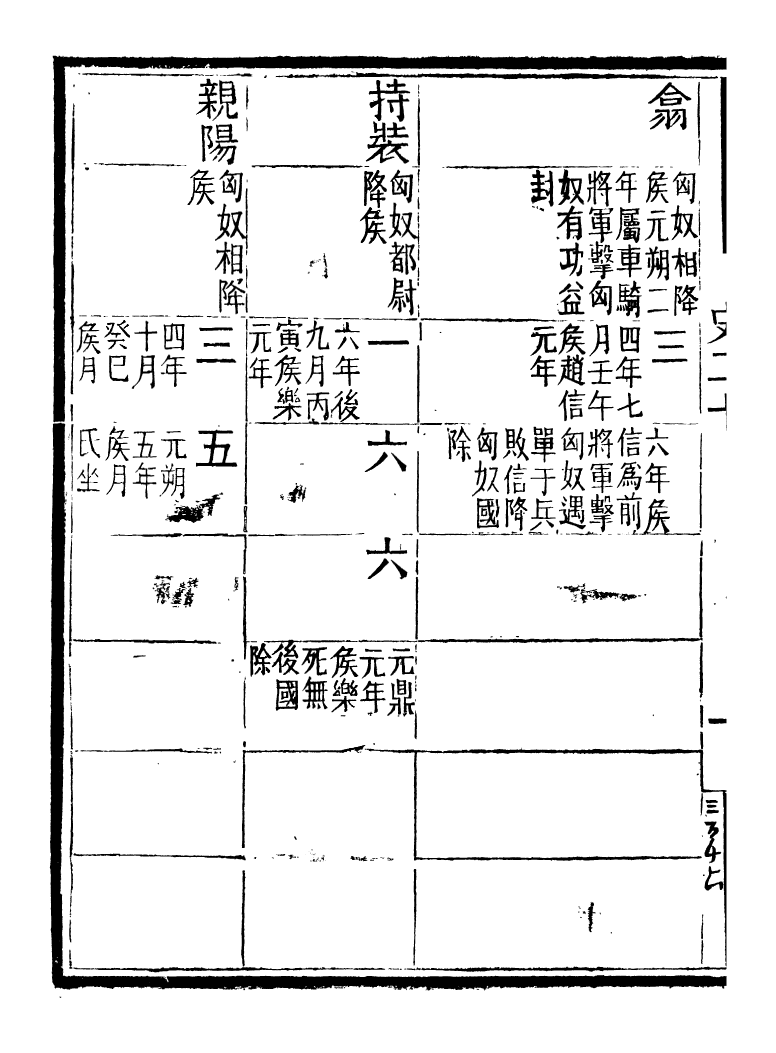 翕
匈奴相降
侯元朔二
年屬車騎
將軍擊匈
奴有功益
封
三
四年七
月壬午
侯趙信
元年
六年侯
信爲前
將軍擊
匈奴遇
單于兵
敗信降
匈奴國
除
持裝
匈奴都尉
降侯
一
六年後
九月丙
寅侯樂
元年
六
六
元鼎
元年
侯樂
死無
後國
除
親陽
匈奴相降
侯
三
四年
十月
癸巳
侯月
五
元朔
五年
侯月
氏坐